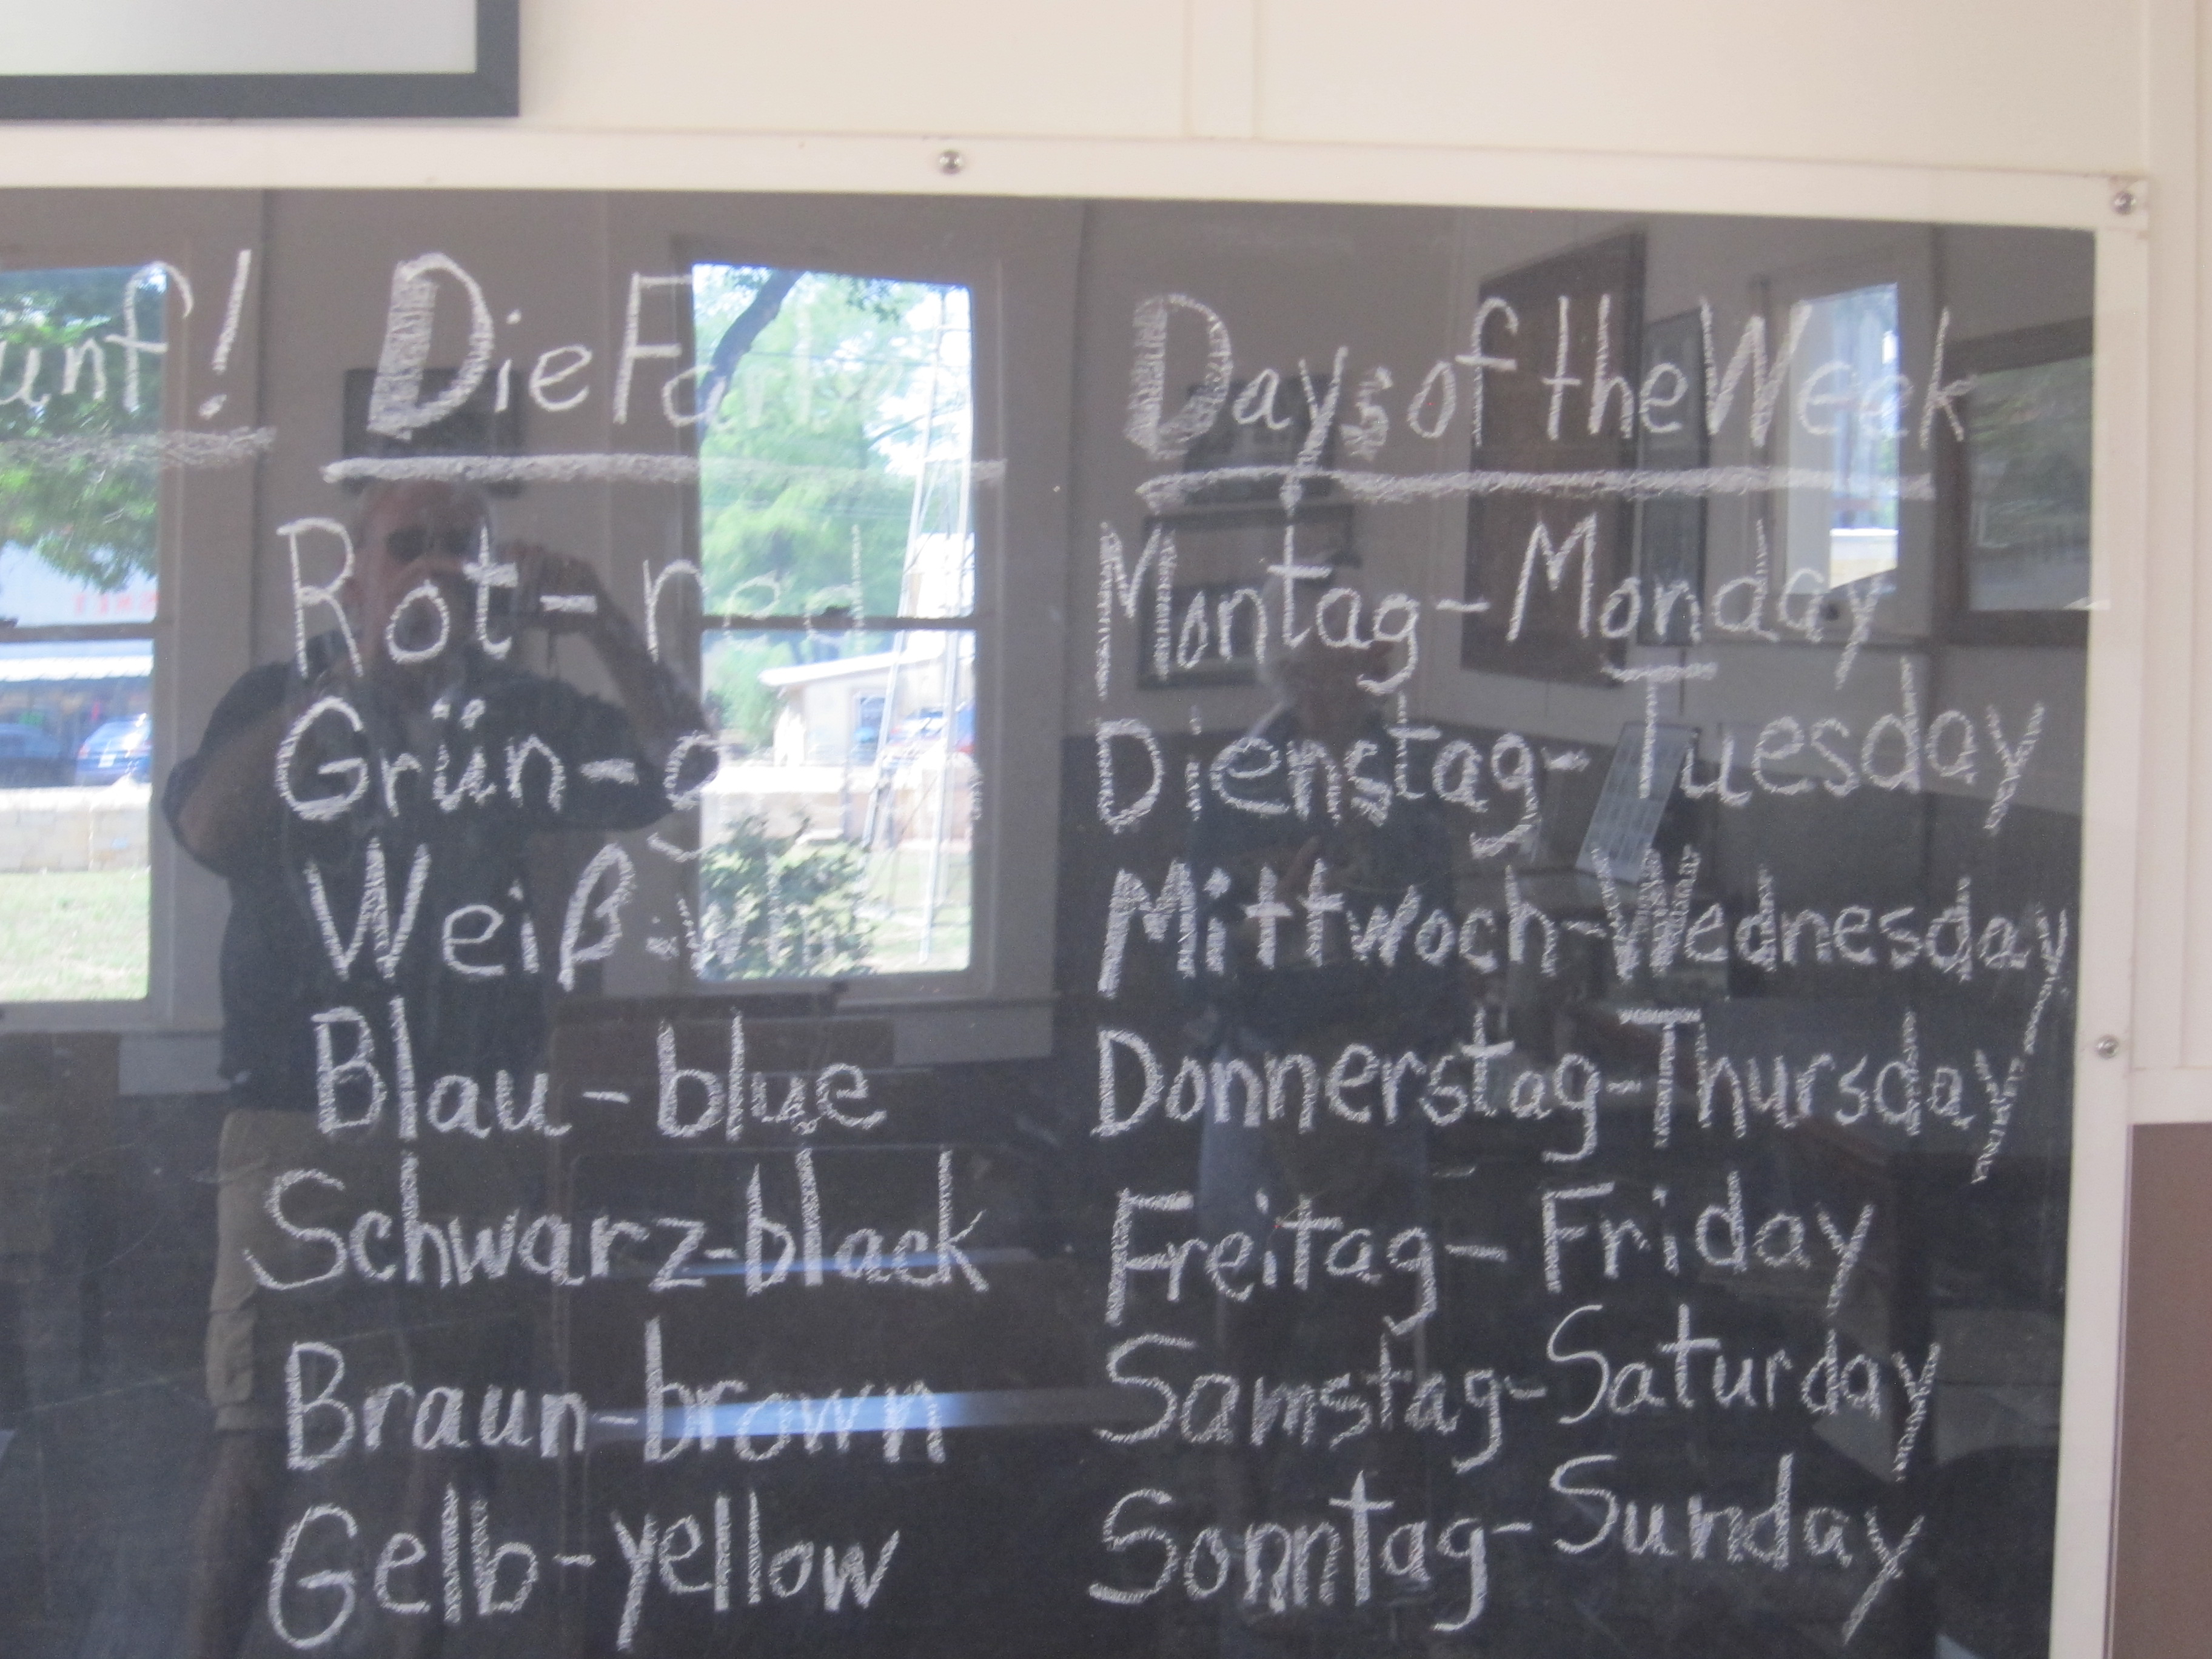 Die Farbe
Rot - red
Grün -
Weiß -
Blau - blue
Schwarz - black
Braun - brown
Gelb - yellow
Days of the Week
Montag - Monday
Dienstag - Tuesday
Mittwoch - Wednesday
Donnerstag - Thursday
Freitag - Friday
Samstag - Saturday
Sonntag - Sunday